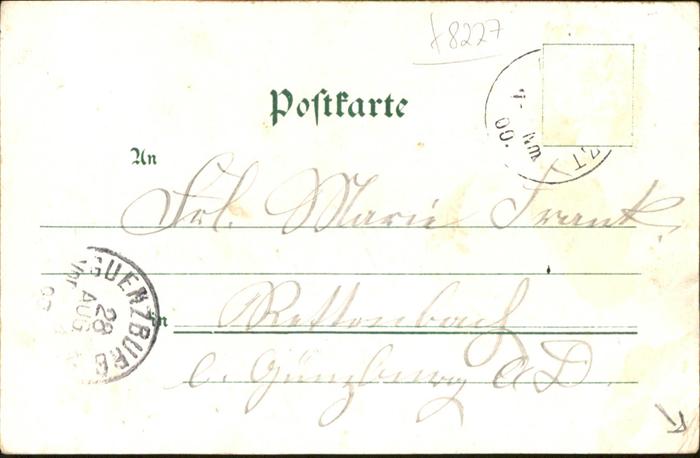 x8227
Postkarte
An
Frl. Marie Frank.
in
Rettenbach
b. Günzburg A D.
GUENZBURG
28
AUG
00.
Nm